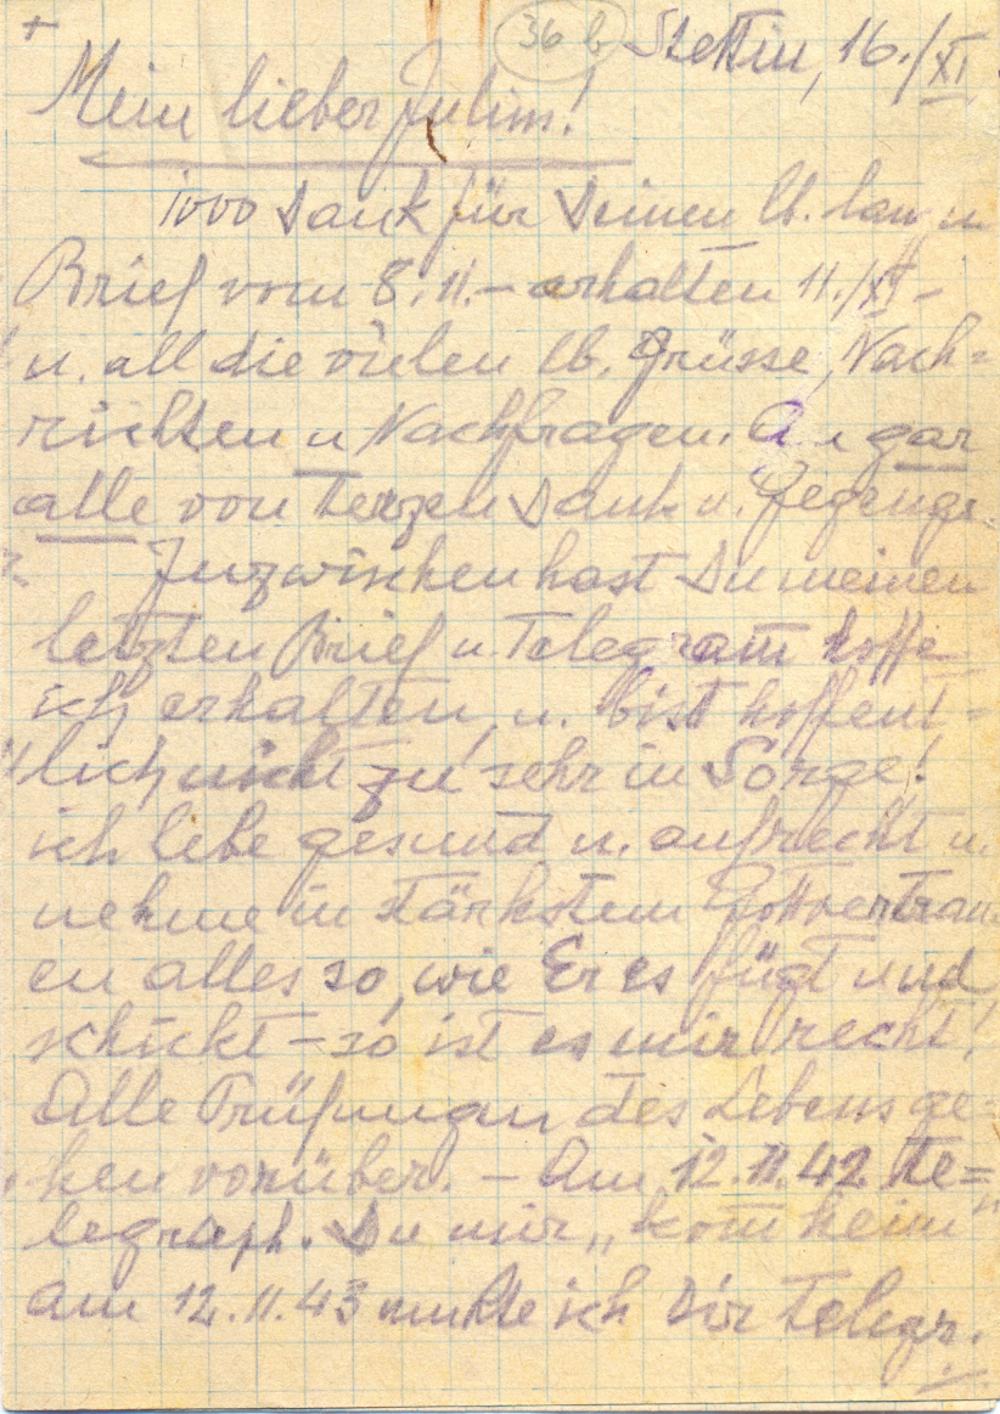 + 36 b Stettin, 16./XI
Mein lieber Julius!
1000 Dank für Deinen lb. langen
Brief vom 8.11. – erhalten 11./XI –
u. all die vielen lb. Grüsse, Nach=
richten u Nachfragen. An gar
alle von Herzen Dank u.
Inzwischen hast Du meinen
letzten Brief u. Telegram hoffe
ich erhalten, u. bist hoffent=
lich nicht zu sehr in Sorge!
ich lebe gesund u. aufrecht u.
nehme in stärkstem Gottvertrau=
en alles so, wie Er es fügt und
schickt – so ist es mir recht!
Alle Prüfungen des Lebens ge=
hen vorüber. – Am 12.11.42 te=
legraph. Du mir „kom heim"
am 12.11.43 mußte ich Dir Telegr.